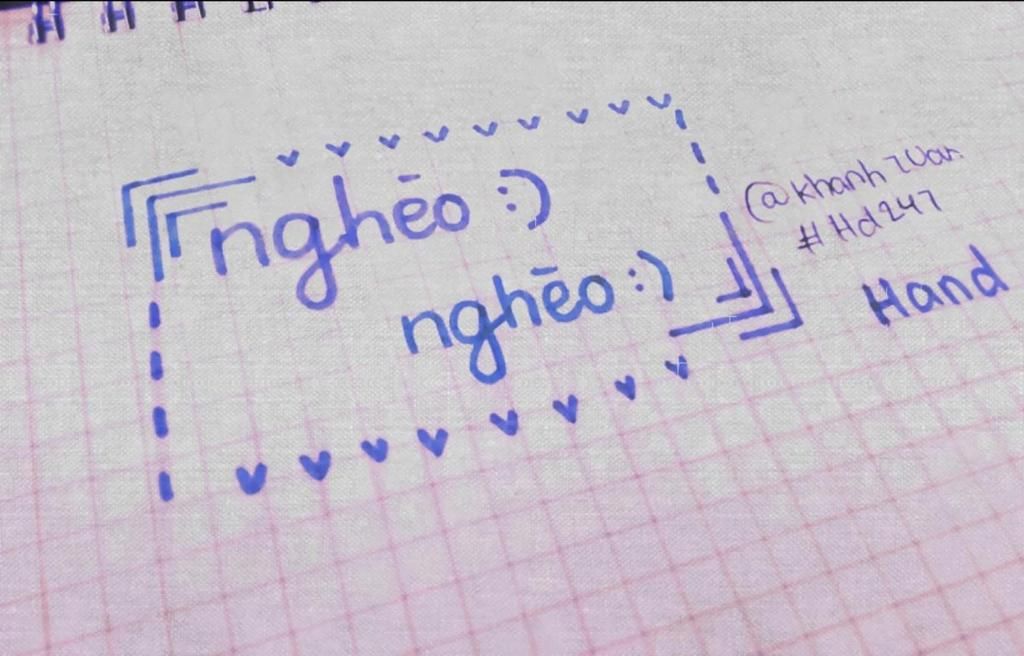 nghēo :)
nghēo :)
@khanh7Uan
#Hd247
Hand